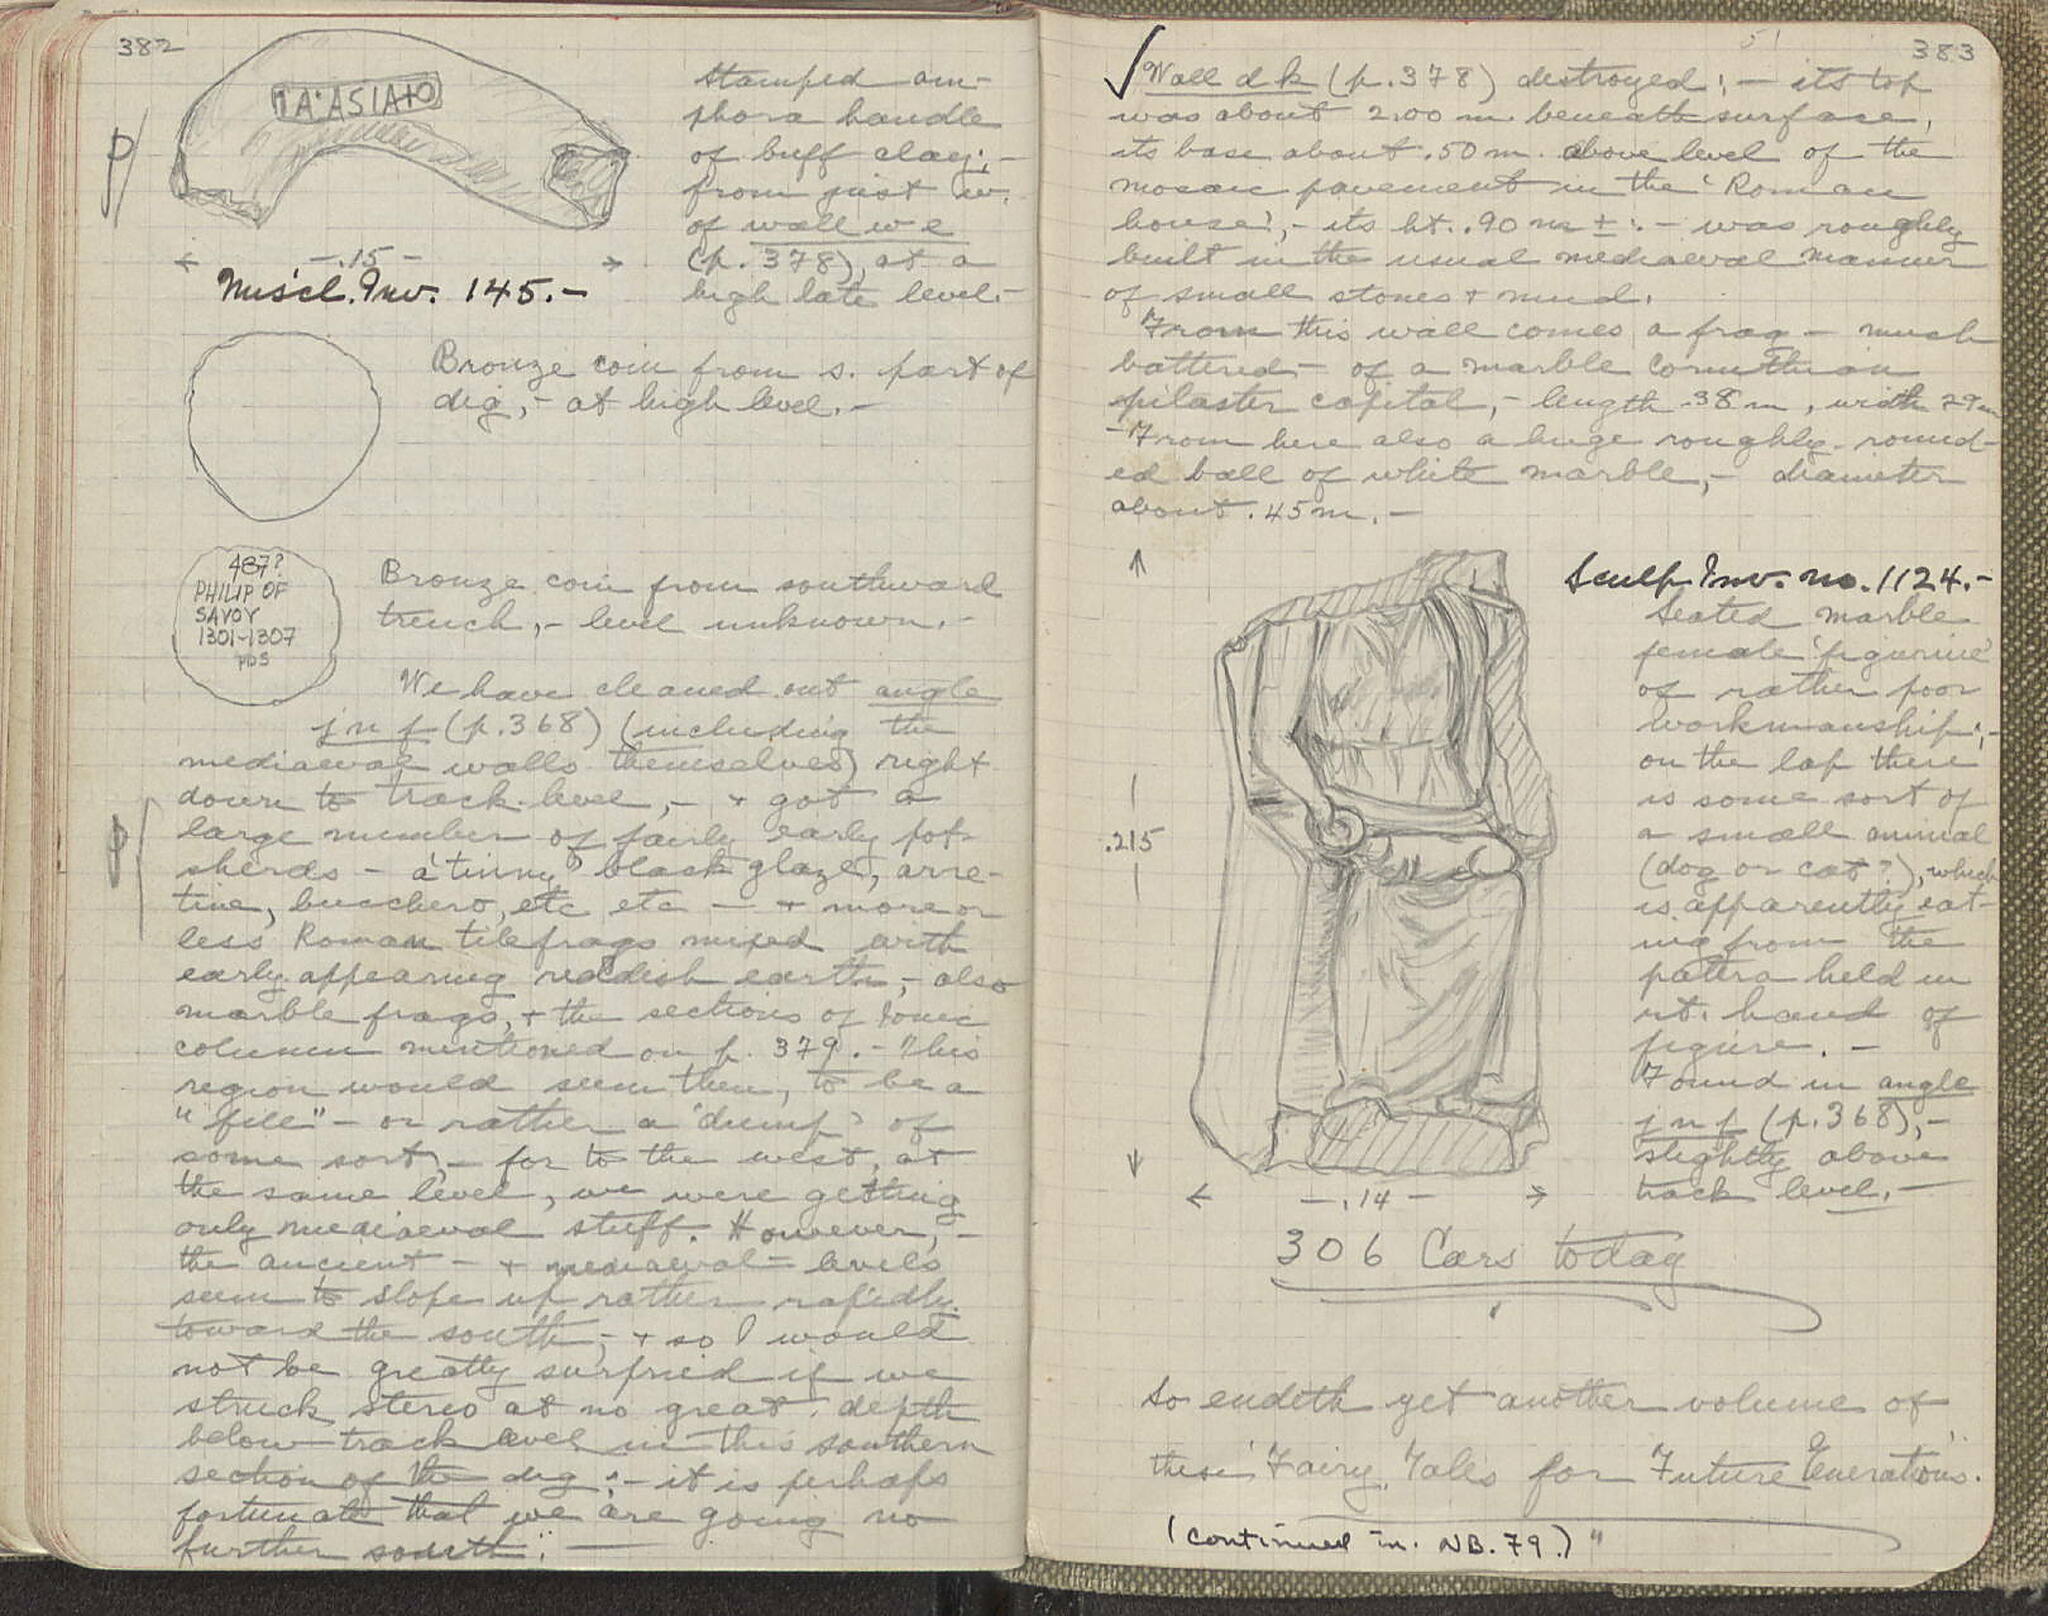 382
ΠΑ·ΑSΙΑΤΟ
stamped am-
phora handle
of buff clay; -
from just w.
of wall w e
(p. 378), at a
high late level. -
P/
- .15 -
Miscl. Inv. 145. -
Bronze coin from s. part of
dig, - at high level. -
487?
PHILIP OF
SAVOY
1301-1307
Bronze coin from southward
trench, - level unknown. -
We have cleaned out angle
j n f (p. 368) (including the
mediaeval walls themselves) right
down to track level, - + got a
P/
large number of fairly early pot-
sherds - a 'tinny' black glaze, arre-
tine, bucchero, etc etc - + more or
less Roman tile frags mixed with
early appearing reddish earth, - also
marble frags, + the sections of Ionic
column mentioned on p. 379. - This
region would seem then, to be a
"fill" - or rather a 'dump' of
some sort, - for to the west, at
the same level, we were getting
only mediaeval stuff. However, -
the ancient - + mediaeval - levels
seem to slope up rather rapidly
toward the south, - + so I would
not be greatly surprised if we
struck stereo at no great depth
below track level in this southern
section of the dig; - it is perhaps
fortunate that we are going no
further south. -
383
✓ Wall d k (p. 378) destroyed; - its top
was about 2.00 m. beneath surface,
its base about .50 m. above level of the
mosaic pavement in the 'Roman
house', - its ht. .90 m ±; - was roughly
built in the usual mediaeval manner
of small stones + mud.
From this wall comes a frag - much
battered - of a marble Corinthian
pilaster capital, - length .38 m, width .29 m
- From here also a huge roughly round-
ed ball of white marble, - diameter
about .45 m. -
Sculp Inv. no. 1124. -
Seated marble
female 'figurine'
of rather poor
workmanship; -
on the lap there
is some sort of
a small animal
(dog or cat?), which
is apparently eat-
ing from the
patera held in
rt. hand of
figure. -
Found in angle
j n f (p. 368), -
slightly above
track level. -
.215
- .14 -
306 Cars today
So endeth yet another volume of
these 'Fairy Tales for Future Generations.'
(continued in NB. 79.)